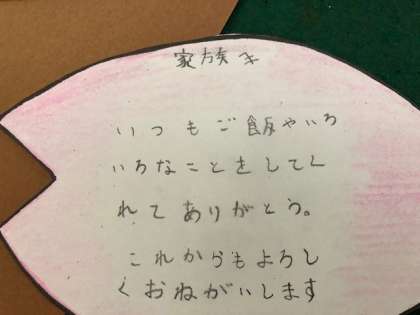 家族へ
いつもご飯やいろ
いろなことをしてく
れてありがとう。
これからもよろし
くおねがいします